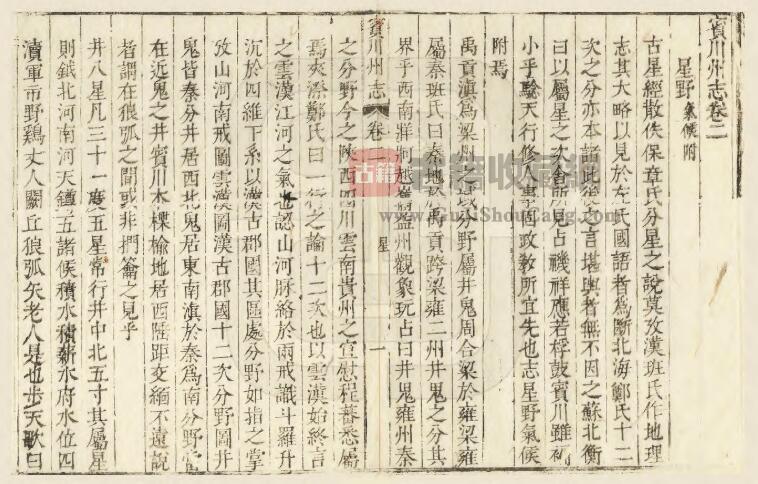 賓川州志卷二
星野 氣候附
古星經散佚保章氏分星之說莫攷漢班氏作地理
志其大略以見於左氏國語者爲斷北海鄭氏十二
次之分亦本諸此後之言堪輿者無不因之蘇北衡
曰以屬星之次舍所見占禨祥應若桴鼓賓川雖
小乎驗天行修人事固政敎所宜先也志星野氣候
附焉
禹貢滇爲梁州之域分野屬井鬼周合梁於雍梁雍
屬秦班氏曰秦地於禹貢跨梁雍二州井鬼之分其
界乎西南牂牁越嶲益州觀象玩占曰井鬼雍州秦
賓川州志 卷二 星 一
之分野今之陝西四川雲南貴州之宣慰程蕃悉屬
焉夾漈鄭氏曰一行之論十二次也以雲漢始終言
之雲漢江河之氣也認山河脉絡於兩戒識斗羅升
沉於四維下系以漢古郡國其區處分野如指之掌
攷山河南戒圖雲漢圖漢古郡國十二次分野圖井
鬼皆秦分井居西北鬼居東南滇於秦爲南分野當
在近鬼之井賓川木楪榆地居西陲距交緬不遠說
者謂在狼弧之間或非捫籥之見乎
井八星凡三十一度五星常行井中北五寸其屬星
則鉞北河南河天罇五諸候積水積薪水府水位四
瀆軍市野鷄丈人闕丘狼弧矢老人是也步天歌曰
古籍收藏網
www.GuJiShouCang.com